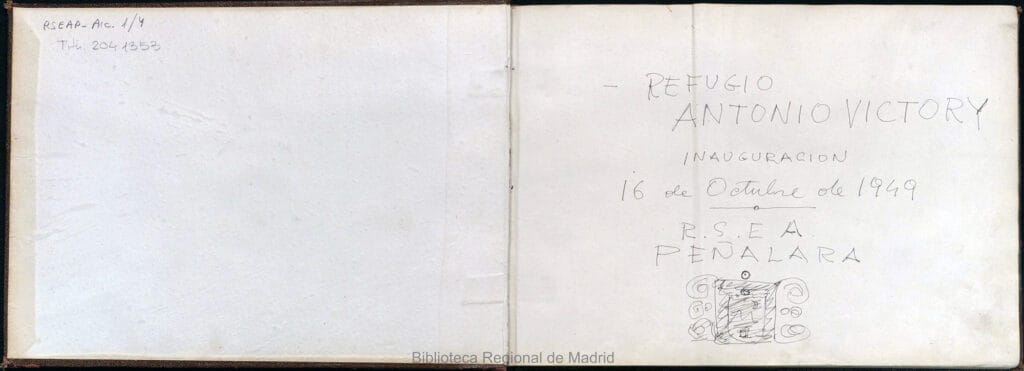 RSEAP-Arc. 1/4
Tit. 2041353
- REFUGIO
ANTONIO VICTORY
INAUGURACION
16 de Octubre de 1949
R.S.E A.
PEÑALARA
Biblioteca Regional de Madrid